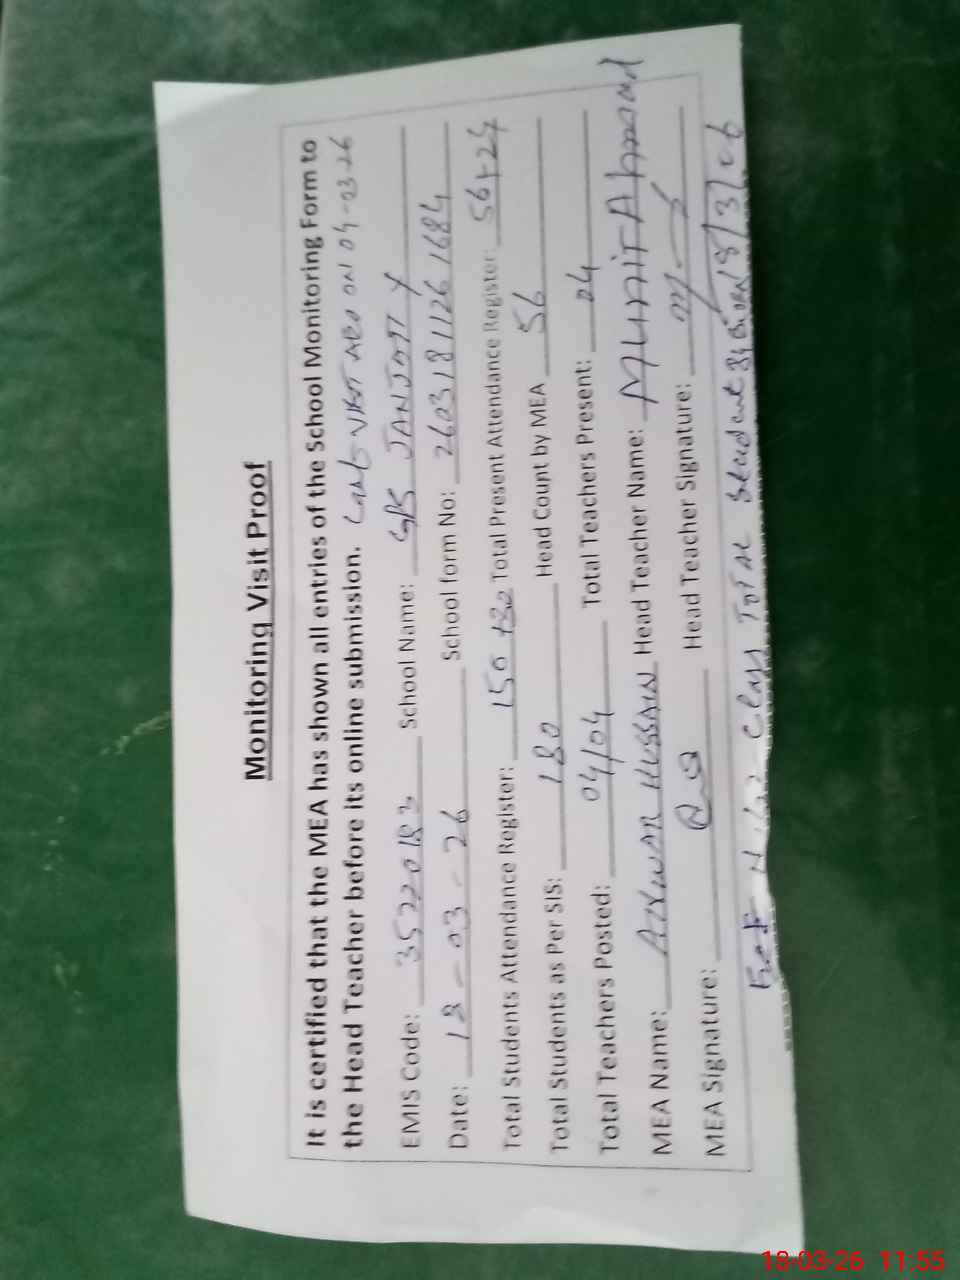 Monitoring Visit Proof
It is certified that the MEA has shown all entries of the School Monitoring Form to
the Head Teacher before its online submission. Last VISIT AEO ON 04-03-26
EMIS Code: 35220182 School Name: GPS JANJOTI
Date: 18-03-26 School form No: 260318112616 84
Total Students Attendance Register: 150+30 Total Present Attendance Register: 56+24
Total Students as Per SIS: 180 Head Count by MEA 56
Total Teachers Posted: 04/04 Total Teachers Present: 04
MEA Name: HUSSAIN Head Teacher Name: MUNIT Ahmad
MEA Signature: Head Teacher Signature:
Class Total Student
18-03-26 11:55